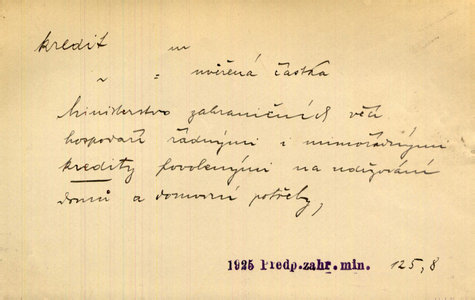 kredit m
~ = uvěřená částka
Ministerstvo zahraničních věcí
hospodaří řádnými i mimořádnými
kredity povolenými na udržování
domů a domovní potřeby,
1925 Předp.zahr.min. 125,8